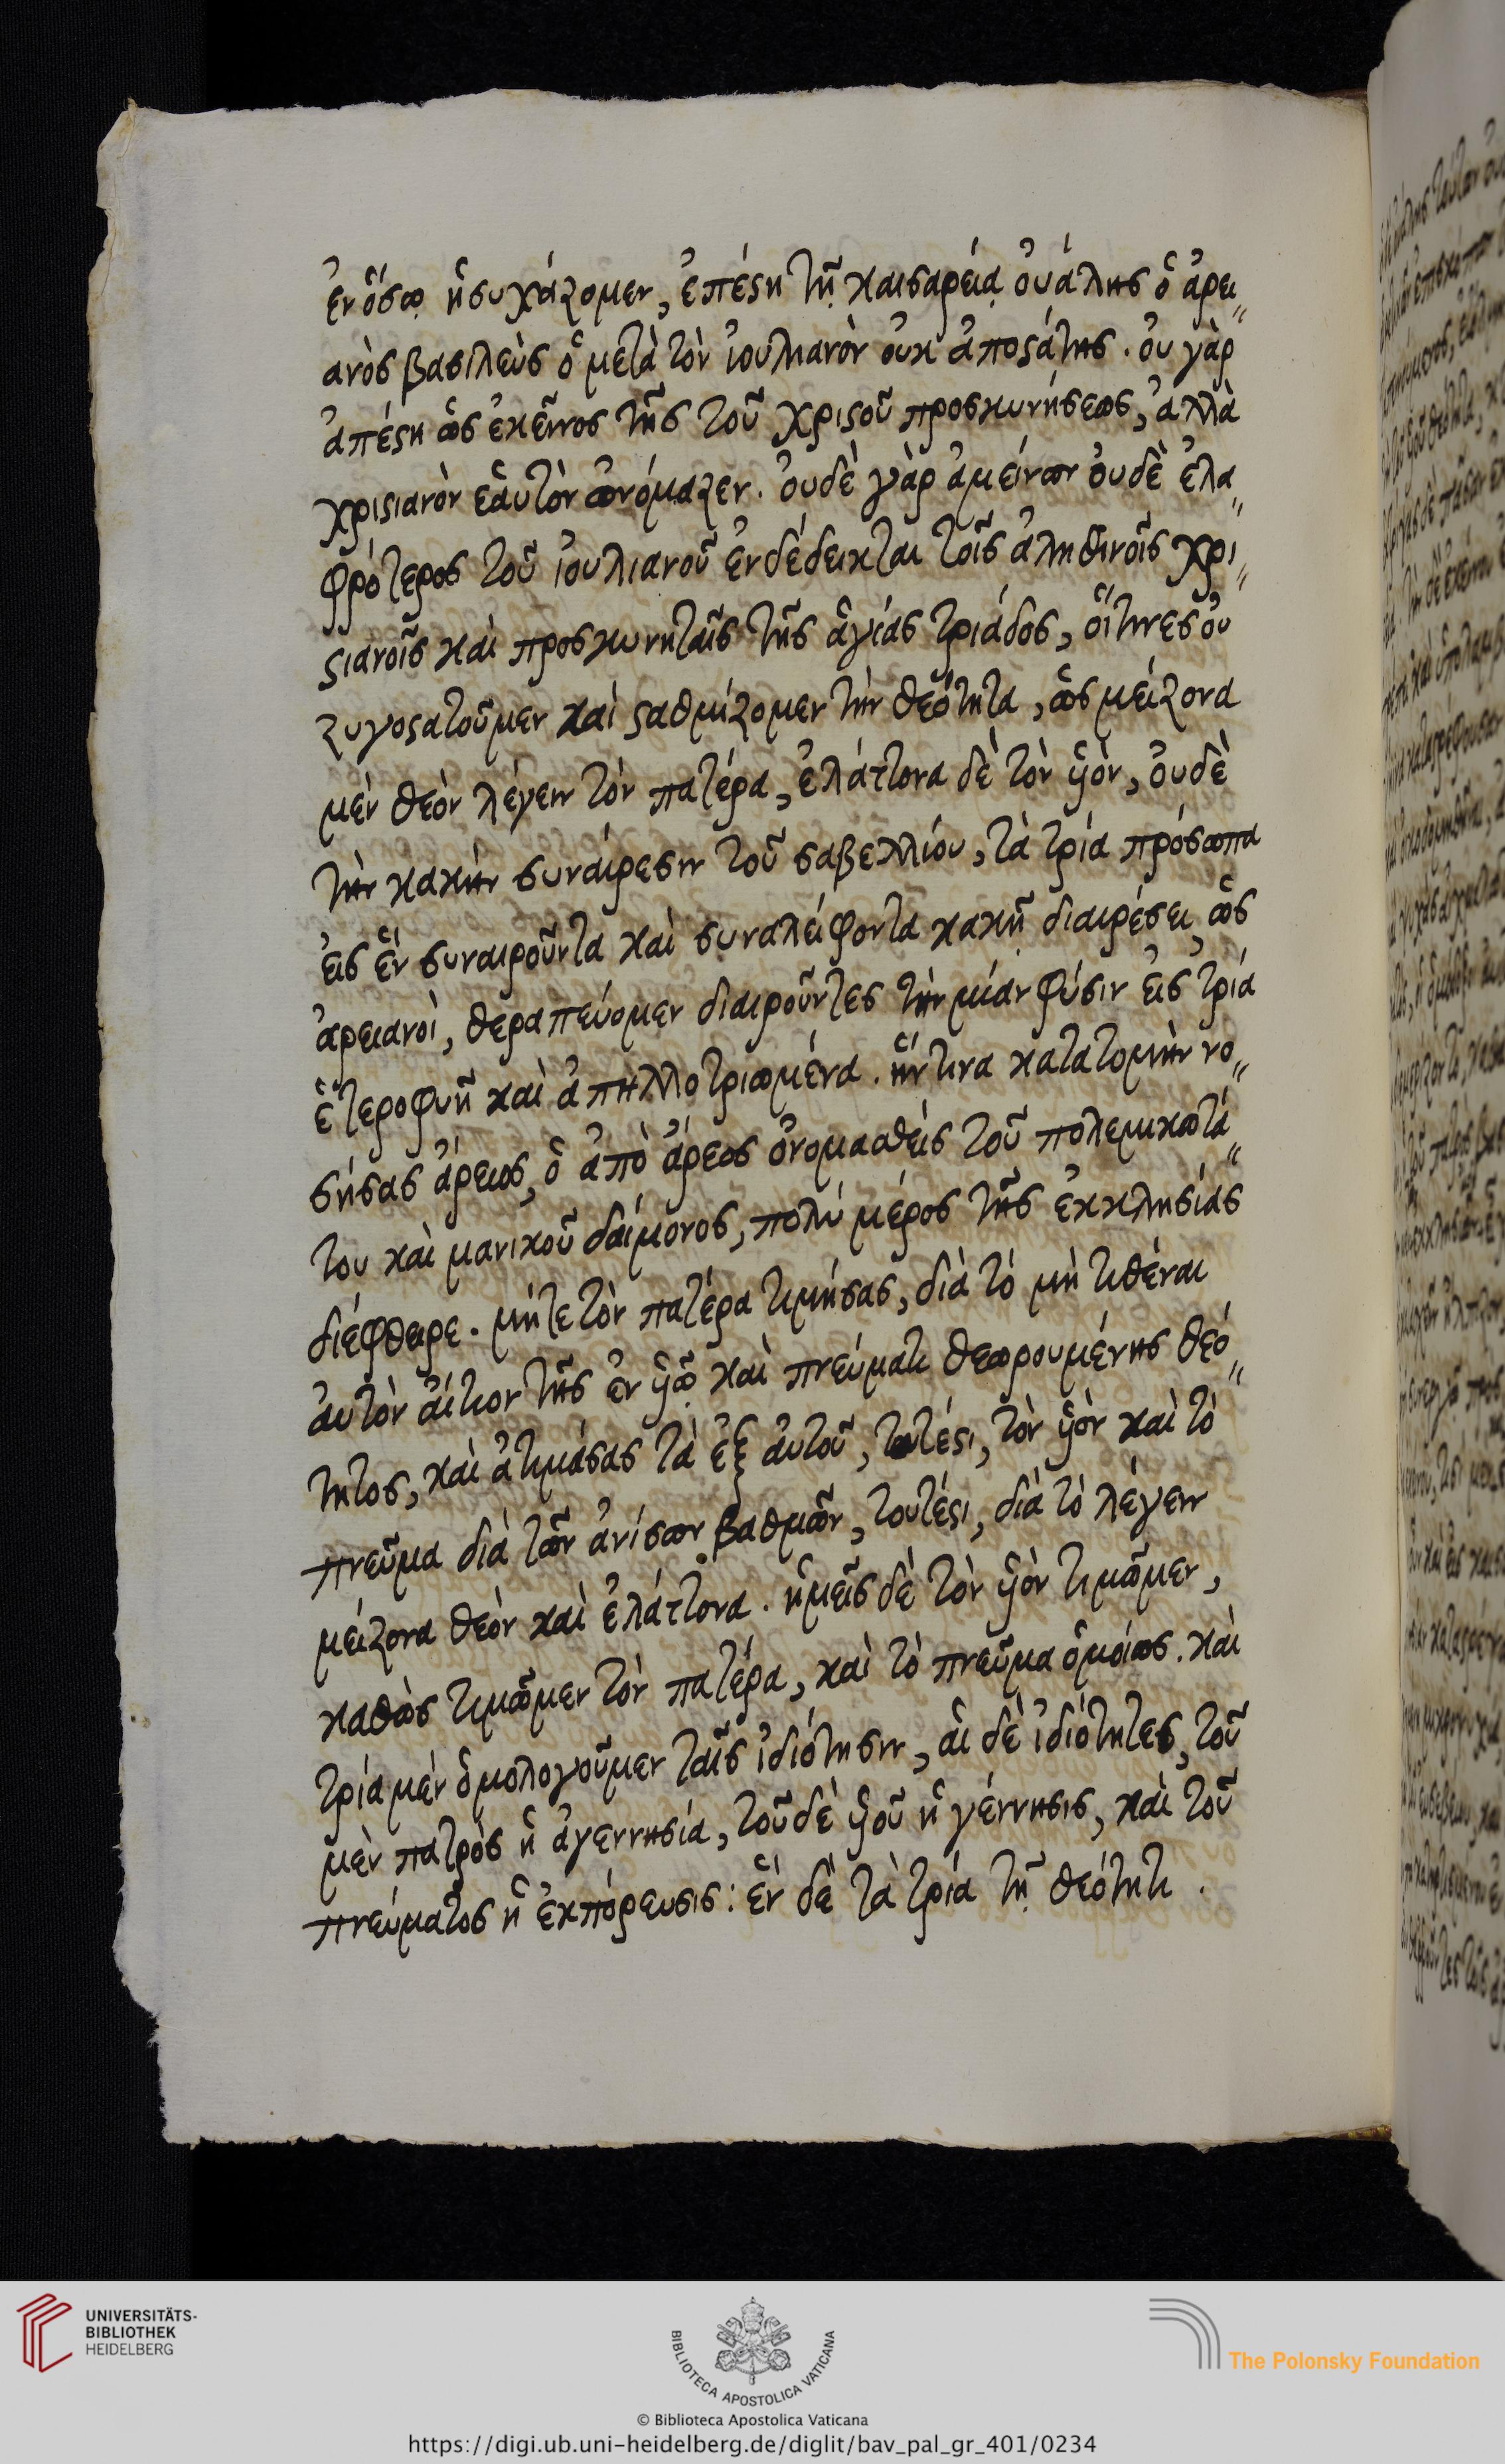 ἐν ὅσῳ ἡσυχάζομεν, ἐπέστη τῇ καισαρείᾳ οὐάλης ὁ ἀρει„
ανὸς βασιλεὺς ὁ μετὰ τὸν ἰουλιανὸν οὐκ ἀποστάτης. οὐ γὰρ
ἀπέστη ὡς ἐκεῖνος τῆς τοῦ χριστοῦ προσκυνήσεως, ἀλλὰ
χριστιανὸν ἑαυτὸν ὠνόμαζεν. οὐδὲ γὰρ ἀμείνων οὐδὲ ἐλα„
φρότερος τοῦ ἰουλιανοῦ ἐνδέδεικται τοῖς ἀληθινοῖς χρι„
στιανοῖς καὶ προσκυνηταῖς τῆς ἁγίας τριάδος, οἵτινες οὐ
ζυγοστατοῦμεν καὶ σταθμίζομεν τὴν θεότητα, ὡς μείζονα
μὲν θεὸν λέγειν τὸν πατέρα, ἐλάττονα δὲ τὸν υἱὸν, οὐδὲ
τὴν κακὴν συναίρεσιν τοῦ σαβελλίου, τὰ τρία πρόσωπα
εἰς ἓν συναιροῦντα καὶ συναλείφοντα κακῇ διαιρέσει ὡς
ἀρειανοὶ, θεραπεύομεν διαιροῦντες τὴν μίαν φύσιν εἰς τρία
ἑτεροφυῆ καὶ ἀπηλλοτριωμένα. ἥν τινα κατατομὴν νο„
σήσας ἄρειος, ὁ ἀπὸ ἄρεος ὀνομασθεὶς τοῦ πολεμικωτά„
του καὶ μανικοῦ δαίμονος, πολὺ μέρος τῆς ἐκκλησίας
διέφθειρε. μήτε τὸν πατέρα τιμήσας, διὰ τὸ μὴ τιθέναι
αὐτὸν αἴτιον τῆς ἐν υἱῷ καὶ πνεύματι θεωρουμένης θεό„
τητος, καὶ ἀτιμάσας τὰ ἐξ αὐτοῦ, τουτέστι, τὸν υἱὸν καὶ τὸ
πνεῦμα διὰ τῶν ἀνίσων βαθμῶν, τουτέστι, διὰ τὸ λέγειν
μείζονα θεὸν καὶ ἐλάττονα. ἡμεῖς δὲ τὸν υἱὸν τιμῶμεν,
καθὼς τιμῶμεν τὸν πατέρα, καὶ τὸ πνεῦμα ὁμοίως. καὶ
τρία μὲν ὁμολογοῦμεν ταῖς ἰδιότησιν, αἱ δὲ ἰδιότητες, τοῦ
μὲν πατρὸς ἡ ἀγεννησία, τοῦ δὲ υἱοῦ ἡ γέννησις, καὶ τοῦ
πνεύματος ἡ ἐκπόρευσις: ἓν δὲ τὰ τρία τῇ θεότητι.
UNIVERSITÄTS-
BIBLIOTHEK
HEIDELBERG
BIBLIOTECA APOSTOLICA VATICANA
The Polonsky Foundation
© Biblioteca Apostolica Vaticana
https://digi.ub.uni-heidelberg.de/diglit/bav_pal_gr_401/0234